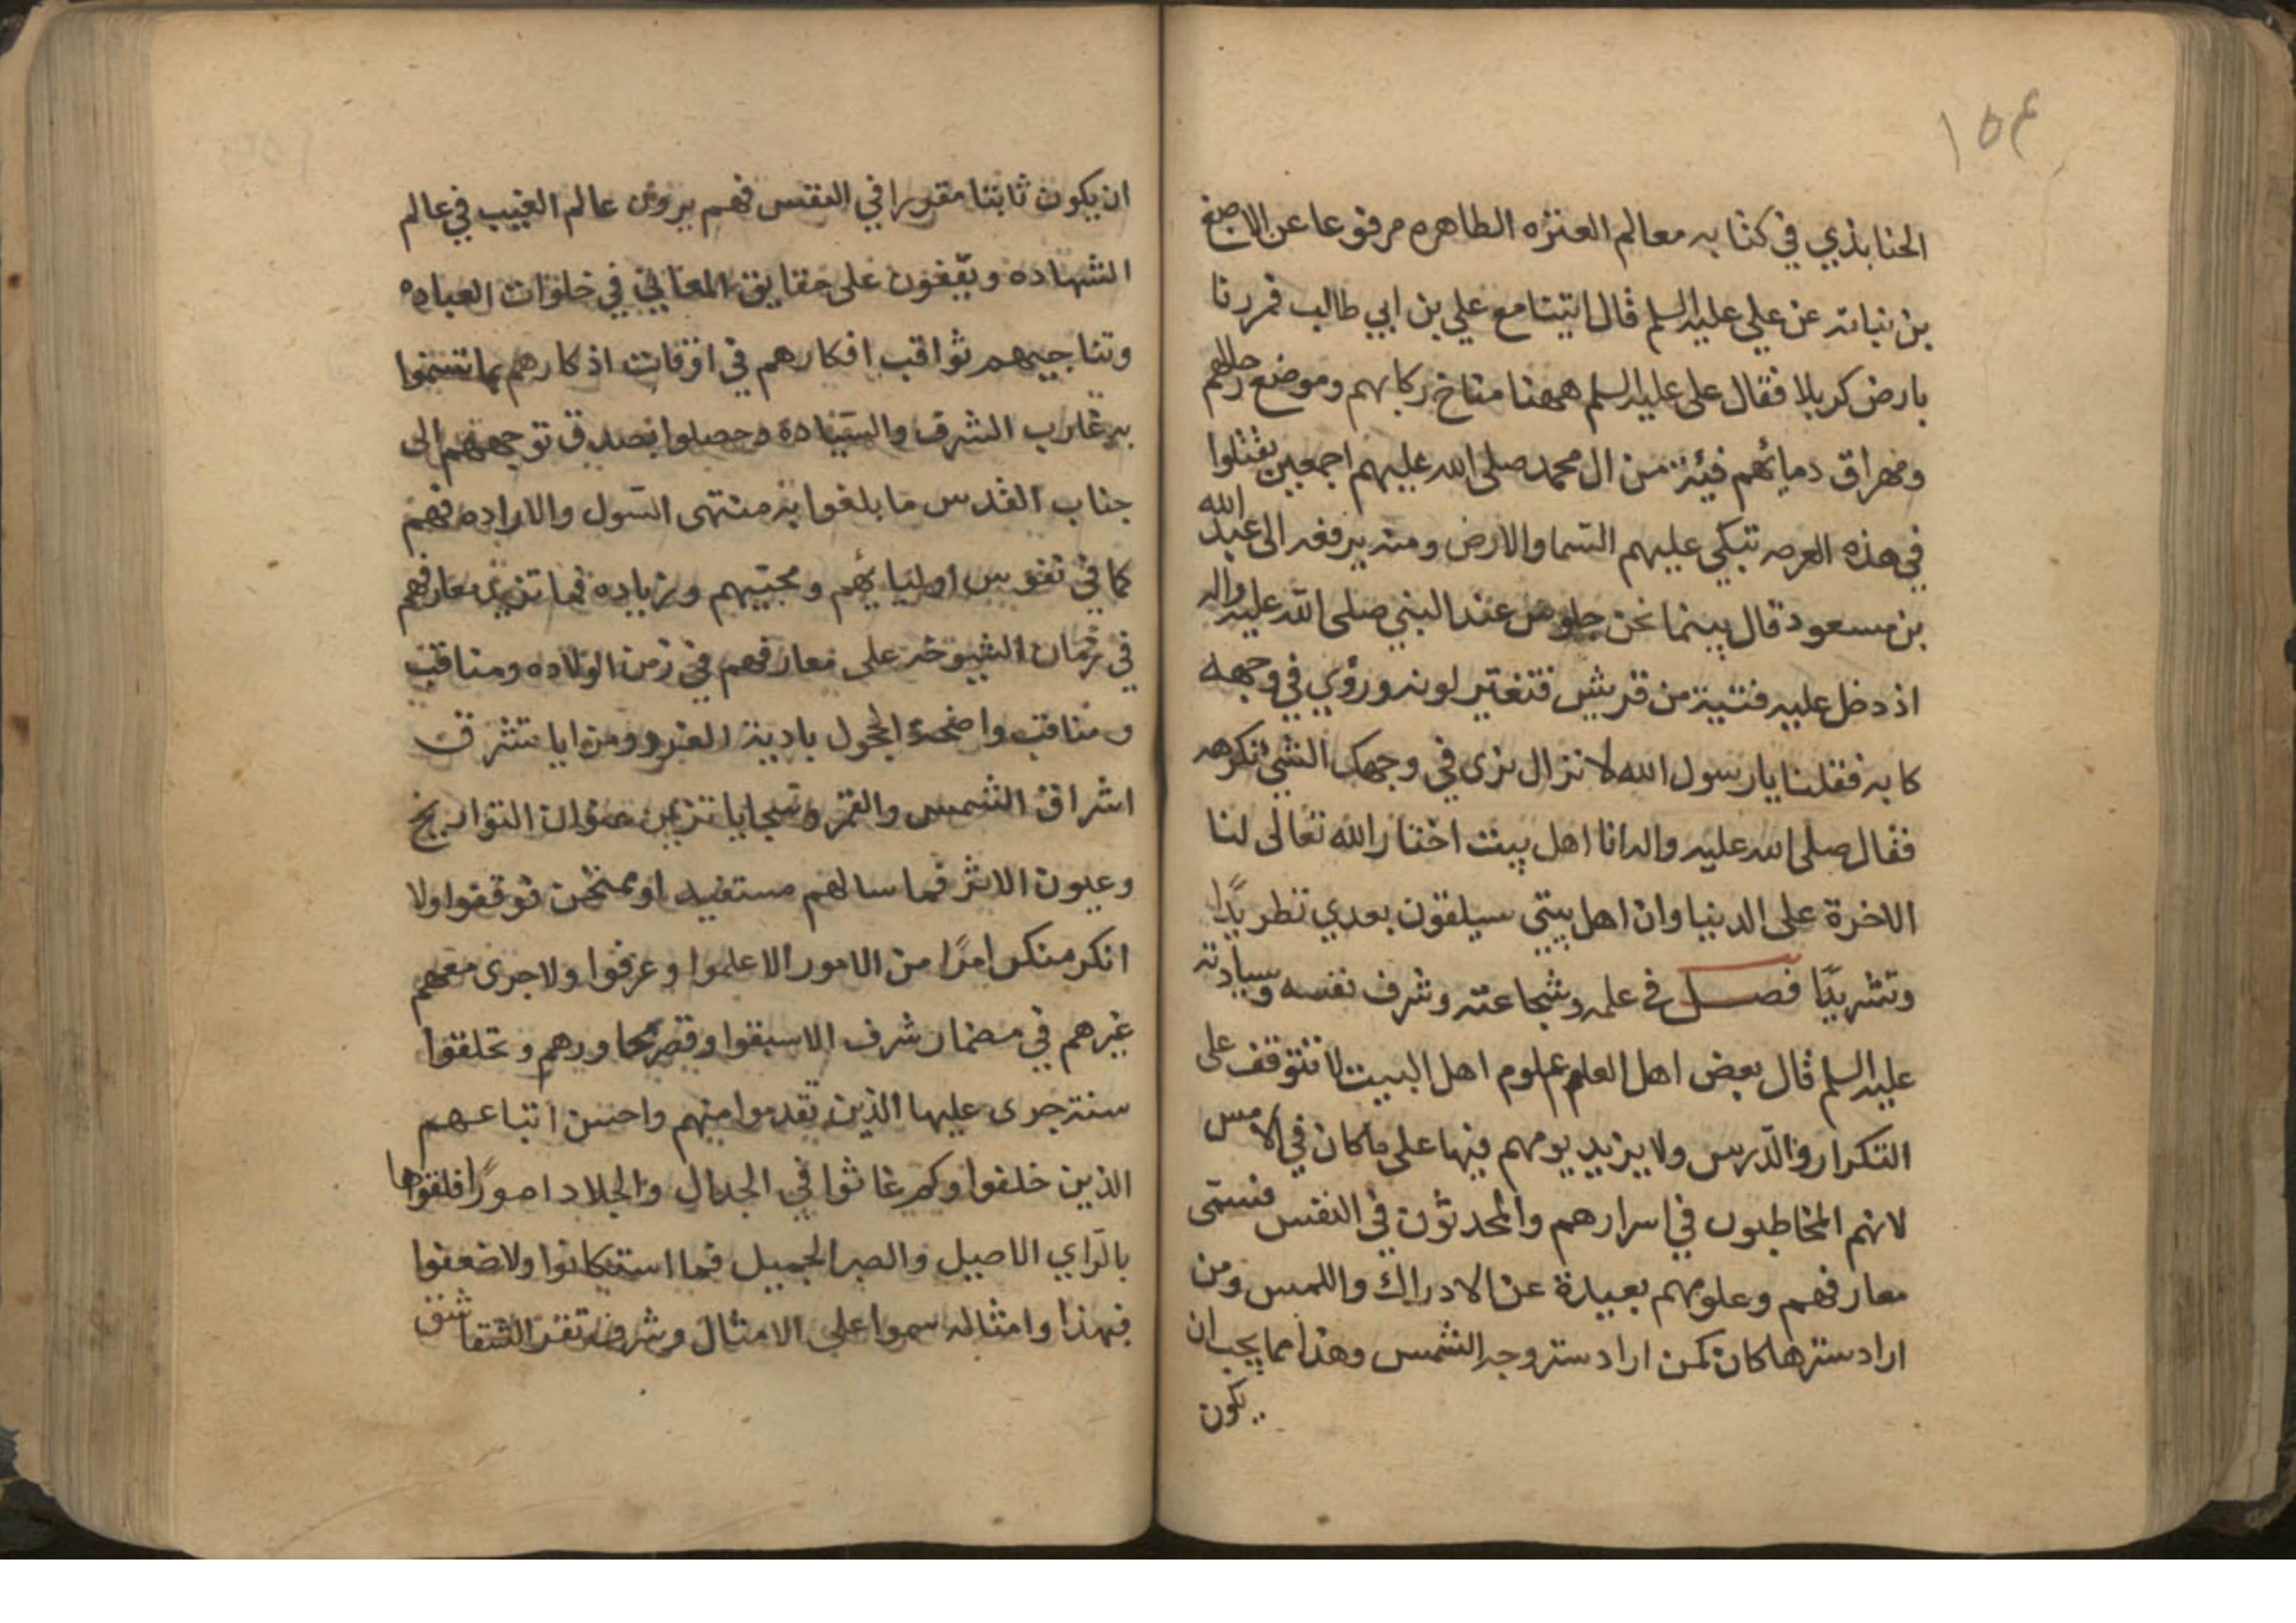 ١٥٤
الحنابذي في كتابه معالم العتره الطاهره مرفوعا عن الاصبغ
بن نباته عن علي عليه السلم قال اتينا مع علي بن ابي طالب فمررنا
بارض كربلا فقال علي عليه السلم ههنا مناخ ركابهم وموضع رحالهم
ومهراق دمائهم فيئة من ال محمد صلى الله عليهم اجمعين يقتلوا
في هذه العرصه تبكي عليهم السما والارض ومنه يرفعه الى عبد الله
بن مسعود قال بينما نحن جلوس عند النبي صلى الله عليه واله
اذ دخل عليه فتية من قريش فتغير لونه ورؤي في وجهه
كابه فقلنا يا رسول الله لا نزال نرى في وجهك الشئ نكرهه
فقال صلى الله عليه واله انا اهل بيت اختار الله تعالى لنا
الاخرة على الدنيا وان اهل بيتي سيلقون بعدي تطريدًا
وتشريدًا فصل في علمه وشجاعته وشرف نفسه وسيادته
عليه السلم قال بعض اهل العلم علوم اهل البيت لا تتوقف على
التكرار والدرس ولا يزيد يومهم فيها على ما كان في الامس
لانهم المخاطبون في اسرارهم والمحدثون في النفس فسمى
معارفهم وعلومهم بعيدة عن الادراك واللمس ومن
اراد سترها كان كمن اراد ستر وجه الشمس وهذا مما يجب ان
يكون
ان يكون ثابتا مقررا في النفس فهم يرون عالم الغيب في عالم
الشهاده ويقفون على حقايق المعاني في خلوات العباده
وتناجيهم ثواقب افكارهم في اوقات اذكارهم بما تسنموا
به غارب الشرف والسيادة وحصلوا بصدق توجههم الى
جناب القدس ما بلغوا به منتهى السول والاراده فهم
كما في نفوس اوليائهم ومحبيهم وزياده فما تزيد معارفهم
في زمان الشيوخه على معارفهم في زمن الولاده ومناقب
ومناقب واضحة الحجول باديه الغرر ومزايا تشرق
اشراق الشمس والقمر وسجايا تزين عنوان التواريخ
وعيون الاثر فما سالهم مستفيد او ممتحن فوقفوا ولا
انكر منكر امرًا من الامور الا علموا وعرفوا ولا جرى معهم
غيرهم في مضمار شرف الا سبقوا وقصر مجاورهم وتخلفوا
سنة جرى عليها الذين تقدموا منهم واحسن اتباعهم
الذين خلفوا وكم عانوا في الجدال والجلاد امورًا فلقوها
بالراي الاصيل والصبر الجميل فما استكانوا ولا ضعفوا
فبهذا وامثاله سموا على الامثال وشرفوا تقر الشقاشق